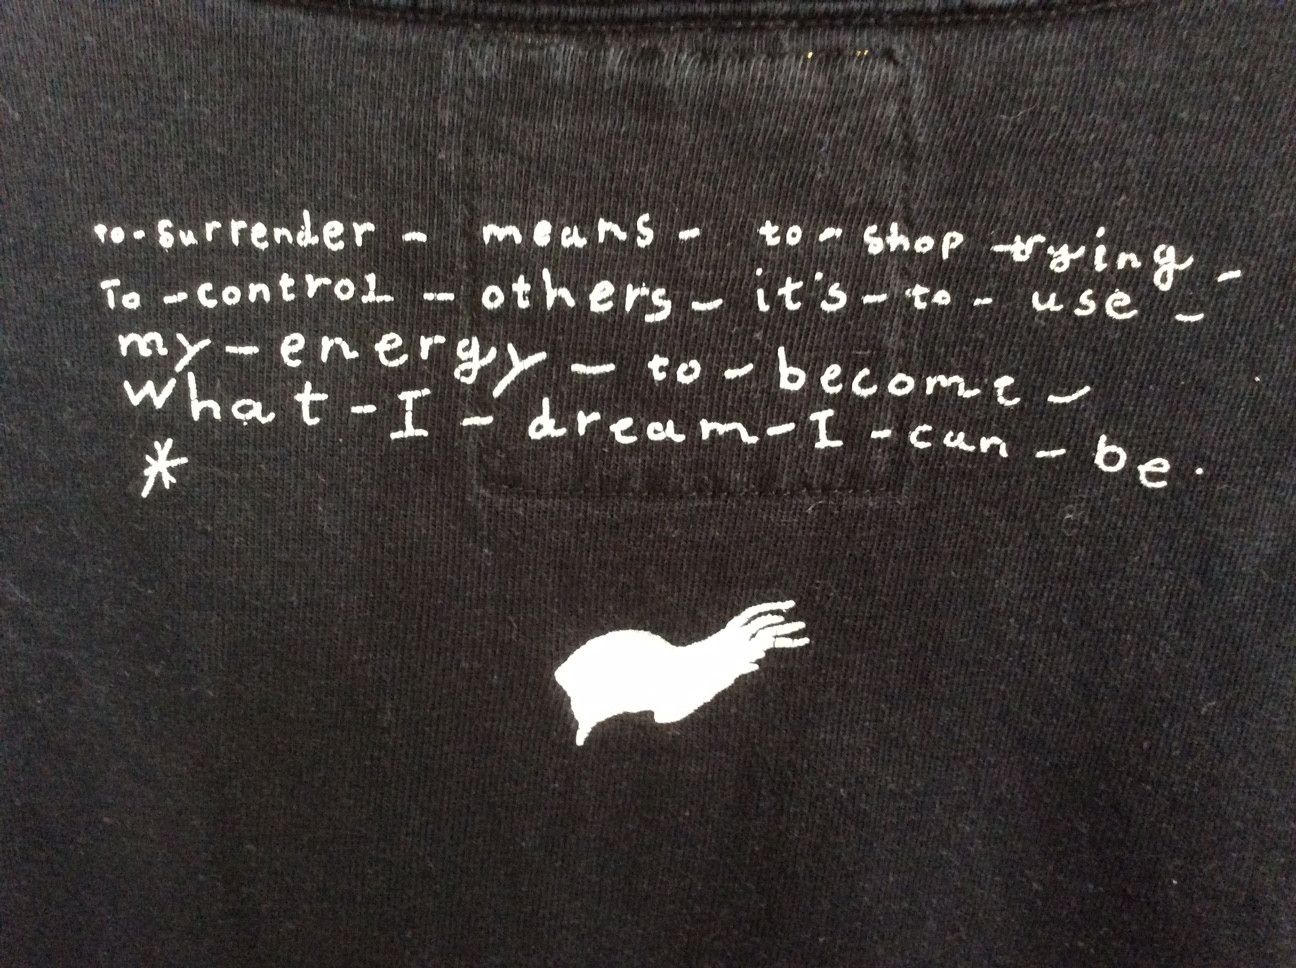 to-surrender - means - to - shop trying -
To - control - others - it's - to - use -
my - energy - to - become -
What - I - dream - I - can - be .
*